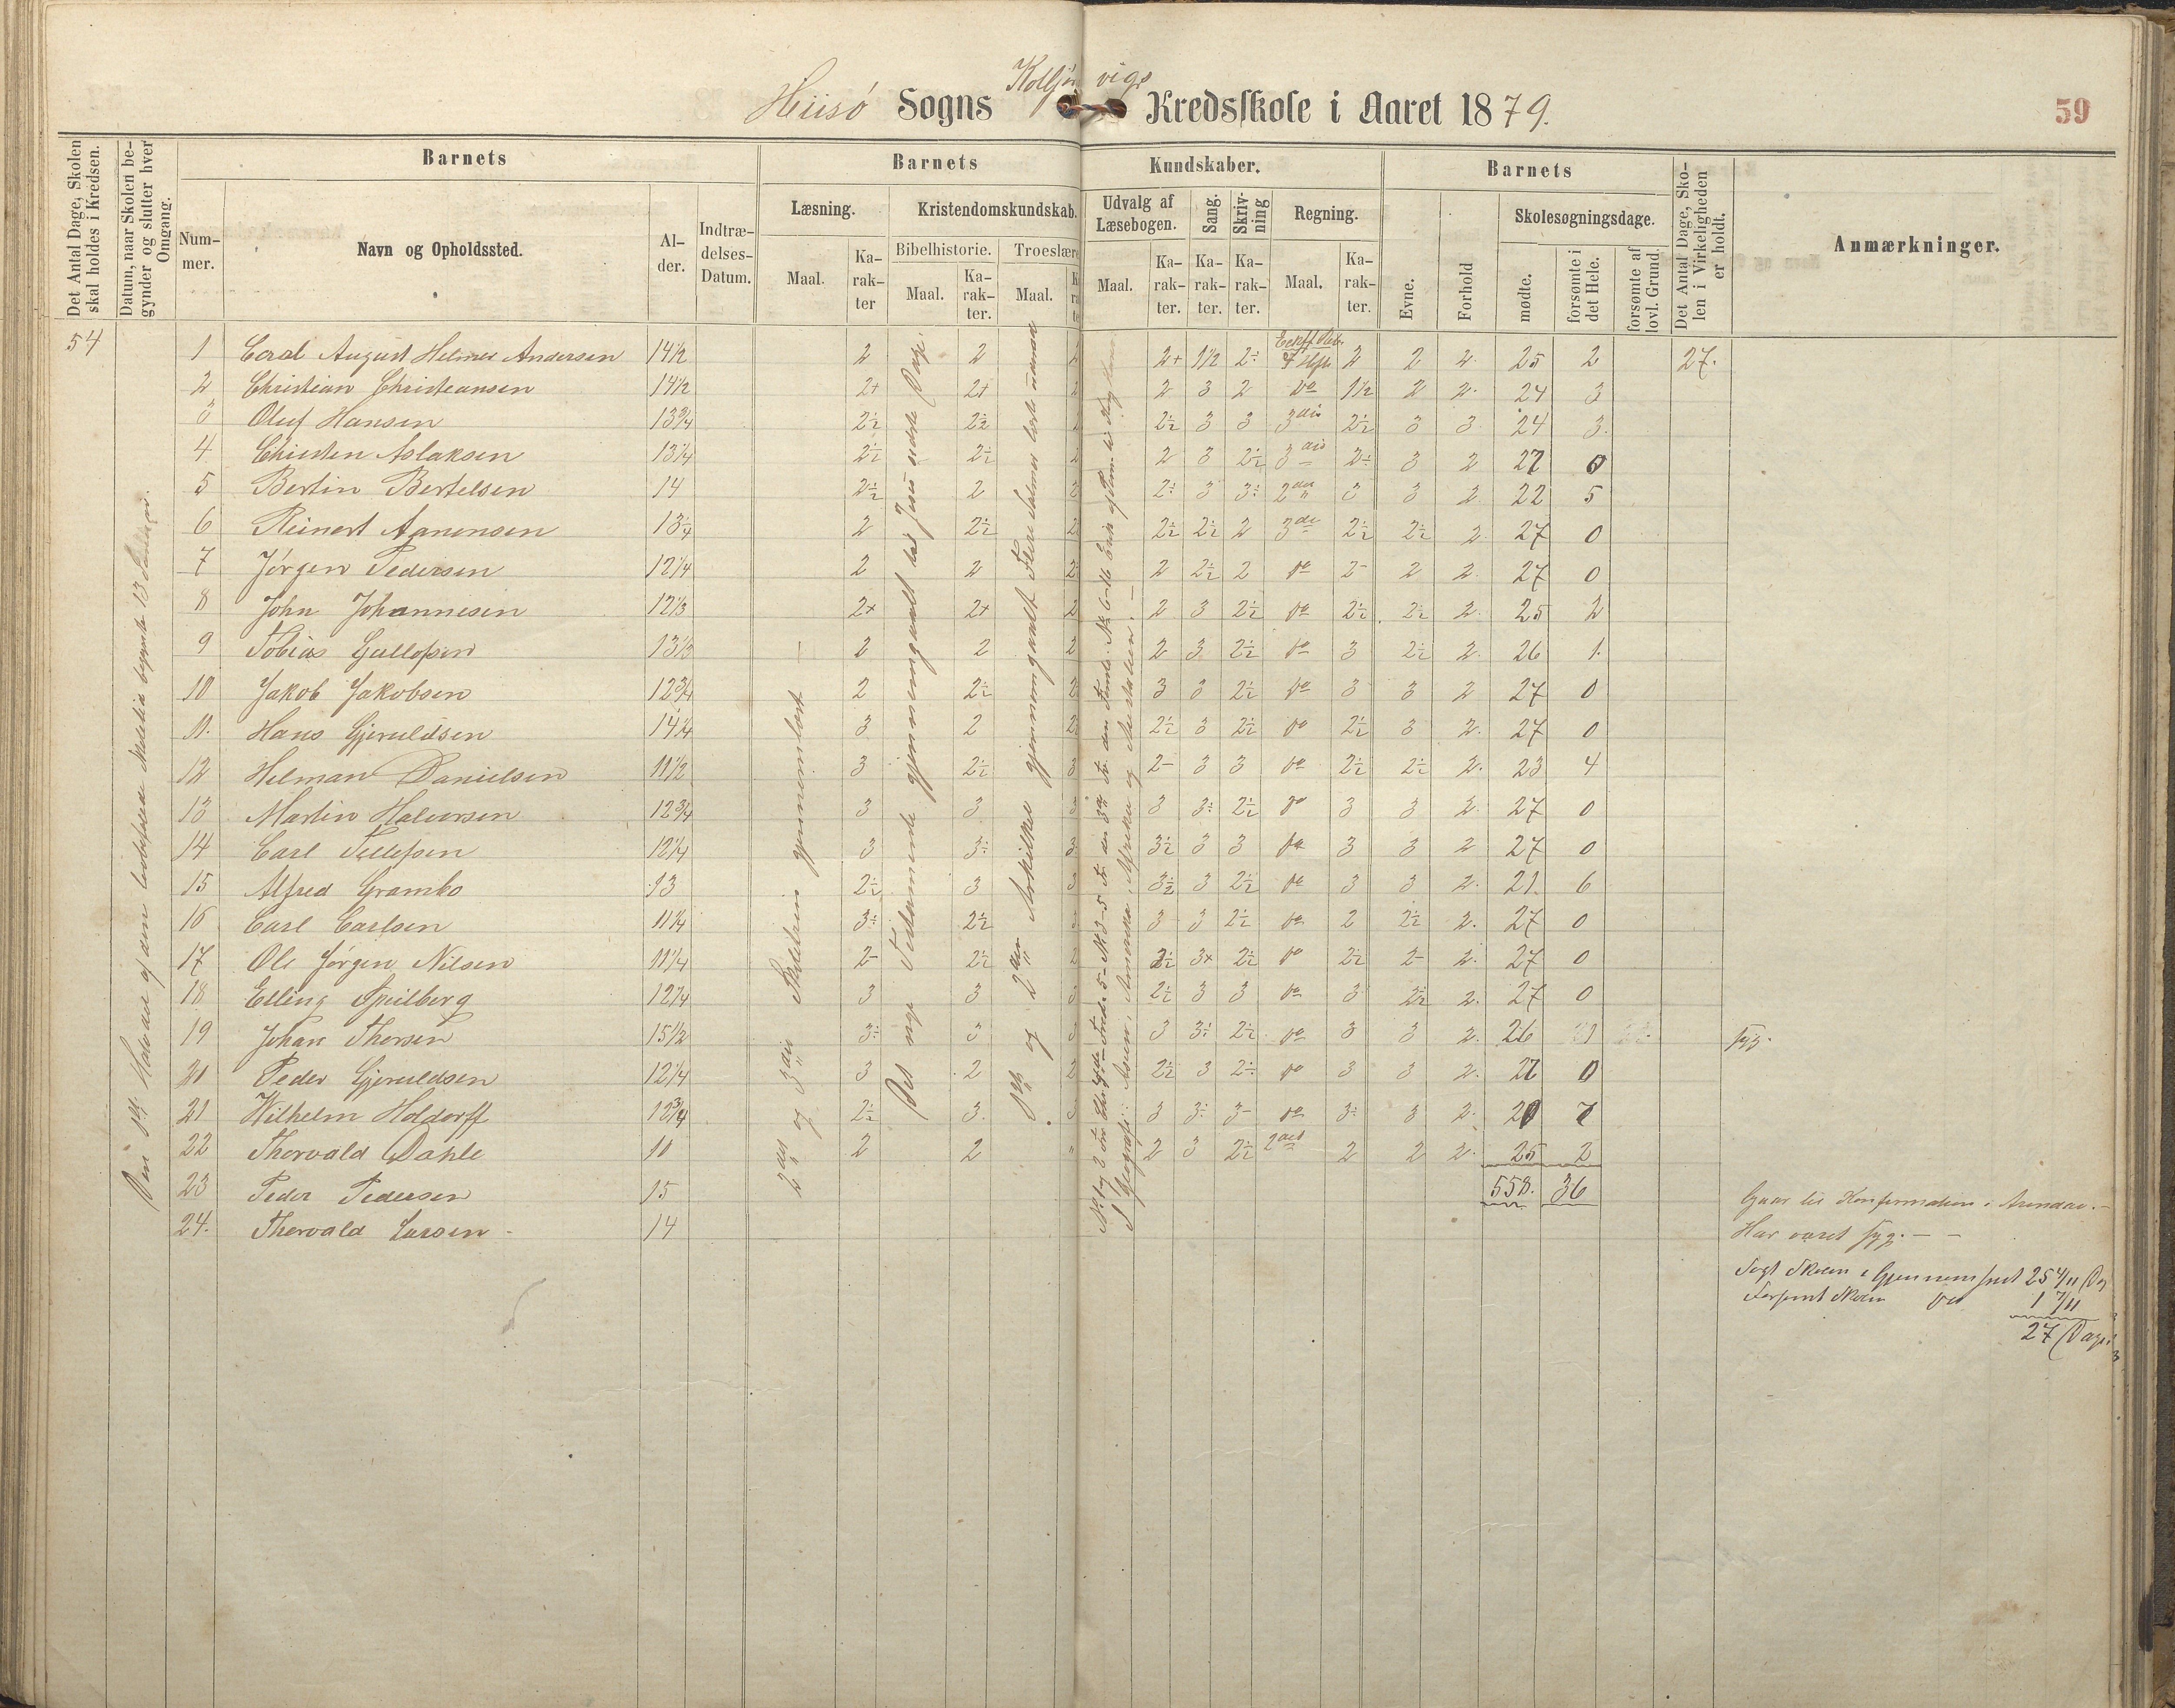 Hiisö Sogns Kolbjörnsvigs Kredsskole i Aaret 1879.
59
Det Antal Dage, Skolen skal holdes i Kredsen.
Datum, naar Skolen begynder og slutter hver Omgang.
Barnets
Nummer.
Navn og Opholdssted.
Alder.
Indtrædelses-Datum.
Barnets Kundskaber.
Læsning.
Maal.
Karakter
Kristendomskundskab.
Bibelhistorie.
Maal.
Karakter.
Troeslære
Maal.
Udvalg af Læsebogen.
Maal.
Karakter.
Sang.
Karakter.
Skrivning
Karakter.
Regning.
Maal.
Karakter.
Barnets
Evne.
Forhold
Skolesøgningsdage.
mødte.
forsømte i det Hele.
forsømte af lovl. Grund.
Det Antal Dage, Skolen i Virkeligheden er holdt.
Anmærkninger.
54
1 August Helmer Andersen 14½ 2 2 2+ 1½ 2÷ 4 Hefte 2 2 2. 25 2 27.
2 Christian Christeansen 14½ 2+ 2+ 2 3 2 do 1½ 2 2. 24 3
3 Oluf Hansen 13¾ 2½ 2½ 2½ 3 3 3die 2½ 3 3 24 3.
4 Christen Aslaksen 13¼ 2½ 2½ 2 3 2½ 3die 2÷ 3 2 27 0
5 Bertin Bertelsen 14 2½ 2 2÷ 3 3÷ 2den 3 3 2 22 5
6 Reinert Aanensen 13¼ 2 2½ 2½ 2½ 2 3die 2½ 2½ 2 27 0
7 Jörgen Pedersen 12¼ 2 2 2 2½ 2 do 2- 2 2 27 0
8 John Johannesen 12⅓ 2+ 2+ 2 3 2½ do 2½ 2½ 2. 25 2
9 Tobias 13⅓ 2 2 2 3 2½ do 3 2½ 2. 26 1.
10 Jakob Jakobsen 12¾ 2 2½ 3 3 2½ do 3 3 2 27 0
11. Hans Gjeruldsen 14¼ 3 2 2½ 3 2½ do 2½ 3 2. 27 0
12 Helman Danielsen 11½ 3 2½ 2- 3 3 do 2½ 2½ 2. 23 4
13 Martin Halvorsen 12¾ 3 3 3 3÷ 2½ do 3 3 2. 27 0
14 Carl Tellefsen 12¼ 3 3÷ 3½ 3 3 do 3 3 2 27 0
15 Alfred Grambo 13 2½ 3 3½ 3 2½ do 3 3 2. 21. 6
16 Carl Carlsen 11¼ 3÷ 2½ 3 3 2½ do 2 2½ 2. 27 0
17 Ole Jörgen Nilsen 11¼ 2- 2½ 2½ 3+ 2½ do 2½ 2- 2. 27 0
18 Elling Speilberg 12¼ 3 3 2½ 3 3 do 3 2½ 2. 27 0
19 Johan Thorsen 15½ 3÷ 3 3 3÷ 2½ do 3 3 2. 26 1 syg.
20 Peder Gjeruldsen 12¼ 3 2 2½ 3 2÷ do 3 3 2. 27 0
21 Wilhelm Holdorff 12¾ 2½ 3. 3 3÷ 3- do 3÷ 3 2. 20 7
22 Thorvald Dahle 10 2 2 2 3 2½ 2det 2 2 2. 25 2
558. 36
23 Peder Pedersen 15 Gaar til Konfirmation i Arendal.-
24. Thorvald Larsen - 14 Har været syg. - -
Søgt Skolen i Gjennemsnit 25 4/11 Dag
Forsømt Skolen do 1 7/11
27 Dage.
2det og 3die Skoletrin gjennemlæst -
Det nye Testamente gjennemgaaet til Jesu
1ste og 2den Artikel gjennemgaaet
Asien, Amerika, Afrika og Australien. -